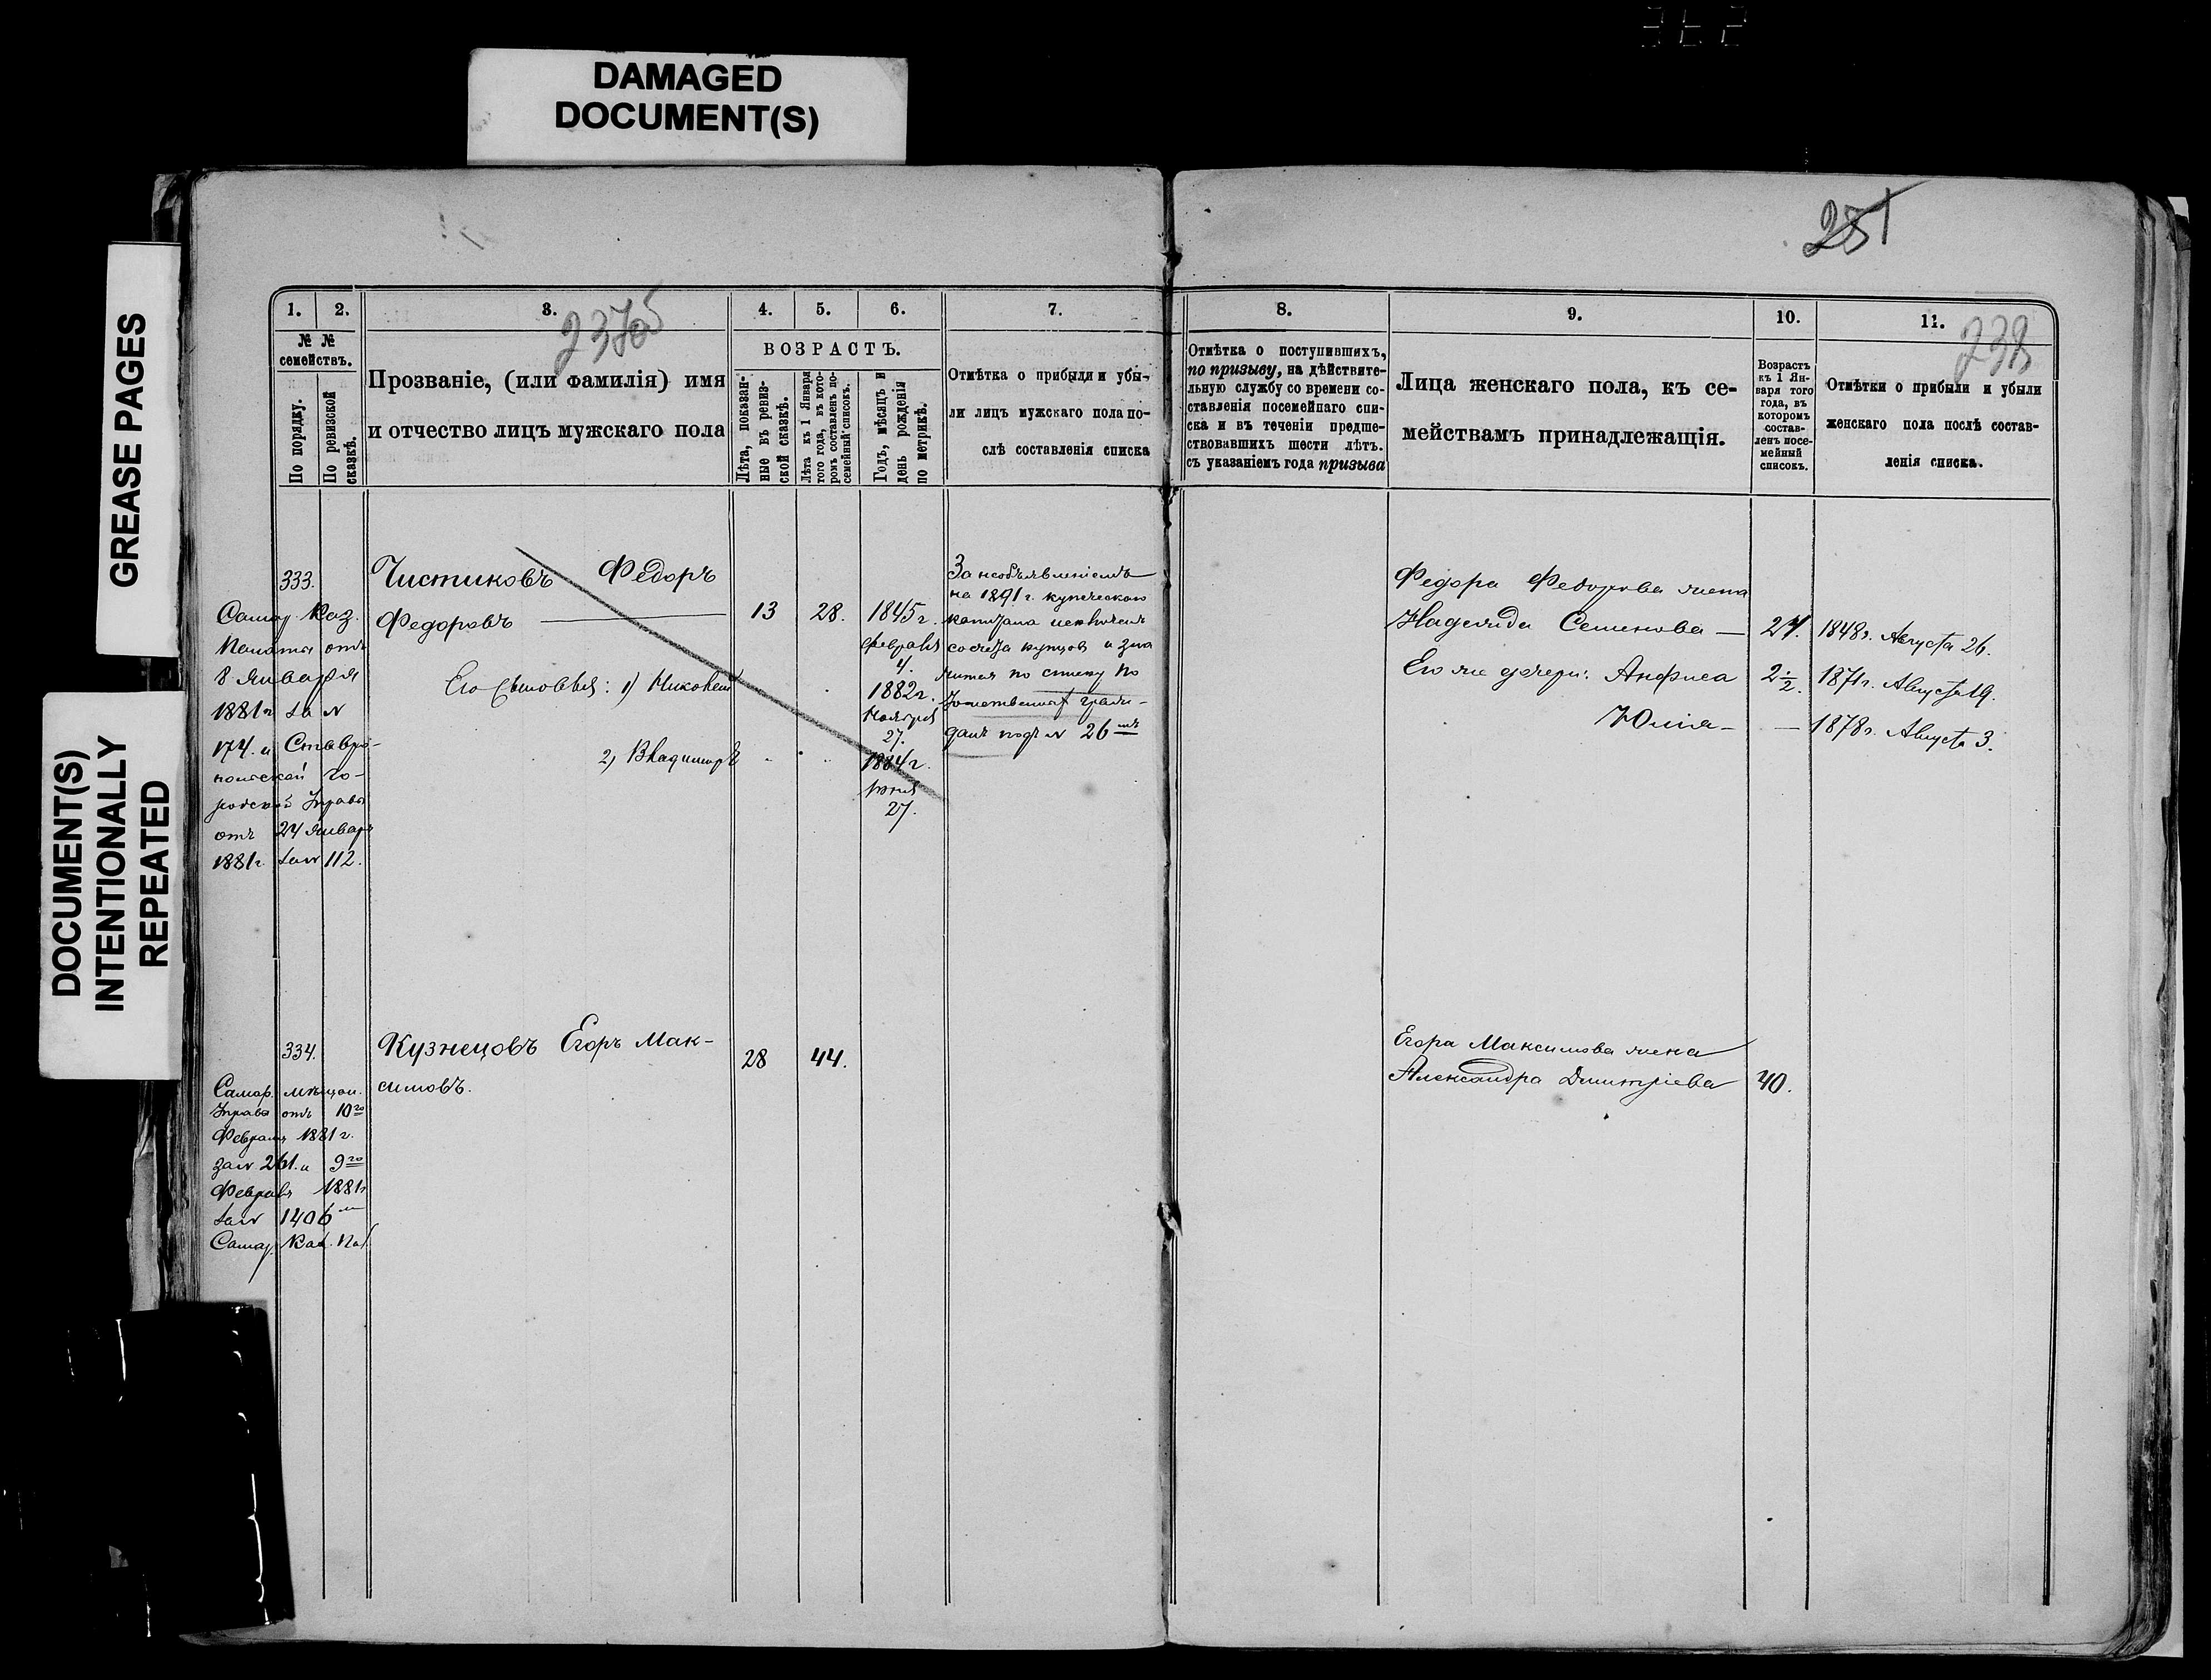 DAMAGED
DOCUMENT(S)
GREASE PAGES
DOCUMENT(S)
INTENTIONALLY
REPEATED
251
1.
2.
3.
4.
5.
6.
7.
8.
9.
10.
11.
238
№ №
семействъ.
По порядку.
По ревизской
сказкѣ.
Прозваніе, (или фамилія) имя
и отчество лицъ мужскаго пола
ВОЗРАСТЪ.
Лѣта, показан-
ные въ ревиз-
ской сказкѣ.
Лѣта къ 1 Января
того года, въ кото-
ромъ составленъ по-
семейный списокъ.
Годъ, мѣсяцъ и
день рожденія
по метрикѣ.
Отмѣтка о прибыли и убы-
ли лицъ мужскаго пола по-
слѣ составленія списка
Отмѣтка о поступившихъ,
по призыву, на дѣйствите-
льную службу со времени со-
ставленія посемейнаго спи-
ска и въ теченіи предше-
ствовавшихъ шести лѣтъ.
съ указаніемъ года призыва
Лица женскаго пола, къ се-
мействамъ принадлежащія.
Возрастъ
къ 1 Ян-
варя того
года, въ
которомъ
состав-
ленъ посе-
мейный
списокъ.
Отмѣтки о прибыли и убыли
женскаго пола послѣ состав-
ленія списка.
333.
Самар. Каз.
Палаты отъ
8 Января
1881 г за №
174. и Ставро-
польской Го-
родской Управы
отъ 24 Января
1881г. за № 112.
Чистиковъ Федоръ
Федоровъ
13
28.
1845 г.
Февраля
4.
Его сыновья: 1) Николай
1882 г.
Ноября
27.
2) Владиміръ
1884 г.
Іюня
27.
За необъявленіемъ
на 1891 г. купеческаго
капитала исключенъ
со счета купцовъ и зна
чится по списку по
гражданъ подъ № 26
Федора Федорова жена
Надежда Семенова — 27. 1848 г. Августа 26.
Его же дочери: Анфиса 2½. 1871 г. Августа 19.
Юлія — — 1878 г. Августа 3.
334.
Самар. мѣщан.
Управы отъ 10го
Февраля 1881 г.
за № 261. и 9го
Февраля 1881 г
за № 1406
Самар. Каз. Пал.
Кузнецовъ Егоръ Мак-
симовъ.
28
44.
Егора Максимова жена
Александра Дмитріева 40.